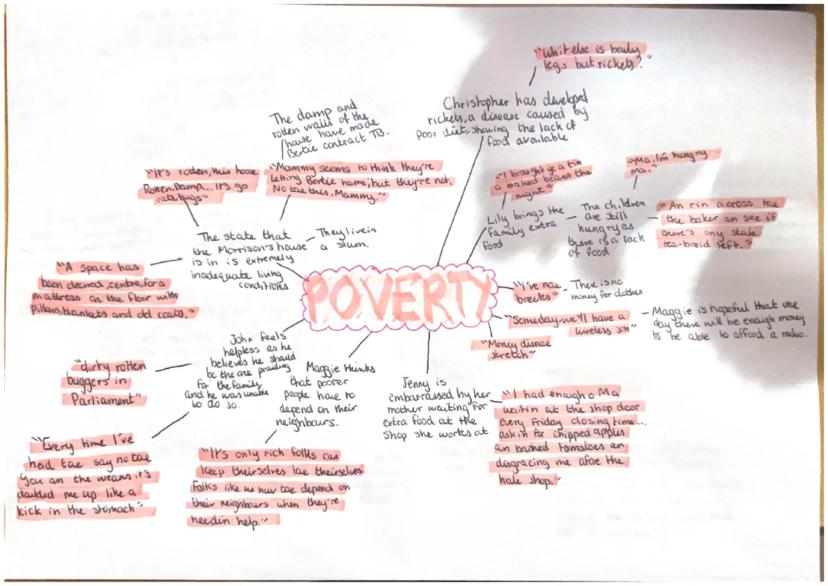 "Whit else is bandy
legs but rickets?"
Christopher has developed
rickets, a disease caused by
poor diet, showing the lack of
food available
The damp and
rotten walls of the
house have made
Bertie contract TB.
"It's rotten, this hoose
Rotten. Damp... It's go
rats, bugs"
"Mammy seems to think they're
letting Bertie hame; but they're not.
No tae this, Mammy."
The state that
the Morrison's house
is in is extremely
inadequate living
conditions
They live in
a slum.
"A space has
been cleared, centre, for a
mattress on the floor with
pillows, blankets and old coats."
"I brought ye a tin
a baked beans the
night"
Lily brings the
family extra
food
The children
are still
hungry as
there is a lack
of food
"Ma, I'm hungry
ma."
"An rin across tae
the baker an see if
there's ony stale
tea-breid left."
POVERTY
"I've nae
breeks"
There is no
money for clothes
"Someday we'll have a
wireless son"
Maggie is hopeful that one
day there will be enough money
to be able to afford a radio.
"Money disnae
stretch"
Jenny is
embarrassed by her
mother waiting for
extra food at the
shop she workes at
"I had enough o Ma
waitin at the shop door
every Friday closing time...
askin for chipped apples
an bashed tomatoes an
disgracing me afore the
hale shop."
Maggie thinks
that poorer
people have to
depend on their
neighbours.
"It's only rich folks can
keep theirselves tae theirselves
Folks like us huv tae depend on
their neighbours when they're
needin help."
John feels
helpless as he
believes he should
be the one providing
for the family
and he was unable
to do so.
"dirty rotten
buggers in
Parliament"
"Every time I've
had tae say no tae
you an the weans it's
doubled me up like a
kick in the stomach"